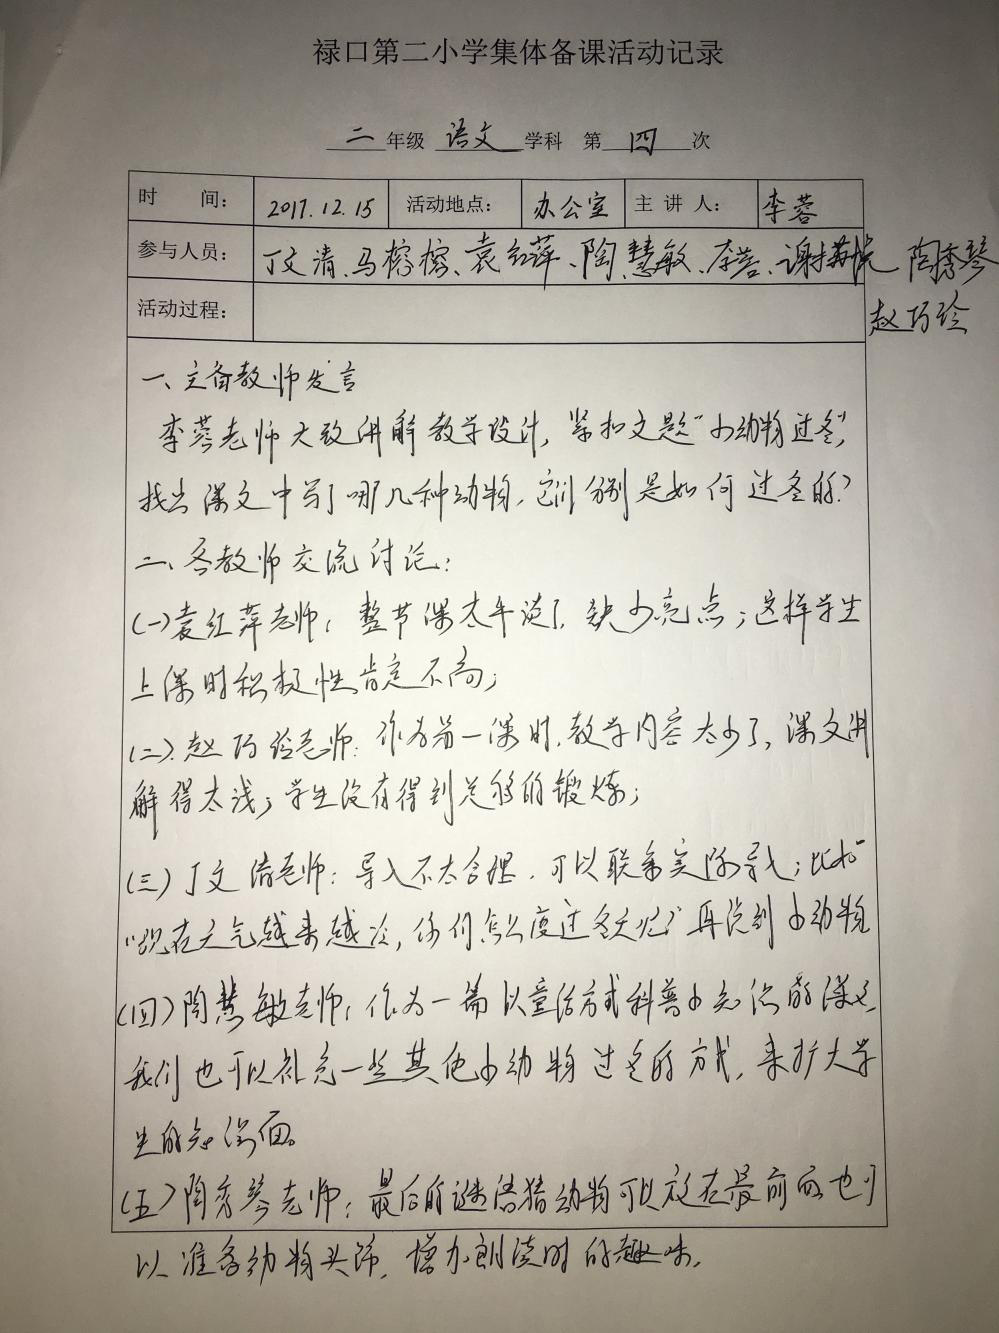 禄口第二小学集体备课活动记录
二年级 语文 学科 第 四 次
时 间: 2017.12.15 活动地点: 办公室 主讲人: 李蓉
参与人员: 丁文清、马榕榕、袁红萍、陶慧敏、李蓉、谢 陶秀琴
赵巧玲
活动过程:
一、主备教师发言
李蓉老师大致讲解教学设计,紧扣文题"小动物过冬",
找出课文中写了哪几种动物,它们分别是如何过冬的?
二、各教师交流讨论:
(一)袁红萍老师:整节课太平淡了,缺少亮点;这样学生
上课时积极性肯定不高;
(二)赵巧玲老师:作为第一课时,教学内容太少了,课文讲
解得太浅;学生没有得到足够的锻炼;
(三)丁文清老师:导入不太合理,可以联系实际导入;比如
"现在天气越来越冷,你们怎么度过冬天呢?"再说到小动物
(四)陶慧敏老师:作为一篇以童话方式科普小知识的课文,
我们也可以补充一些其他小动物过冬的方式,来扩大学
生的知识面。
(五)陶秀琴老师:最后的谜语猜动物可以放在最前面也可
以准备动物头饰,增加朗读时的趣味。